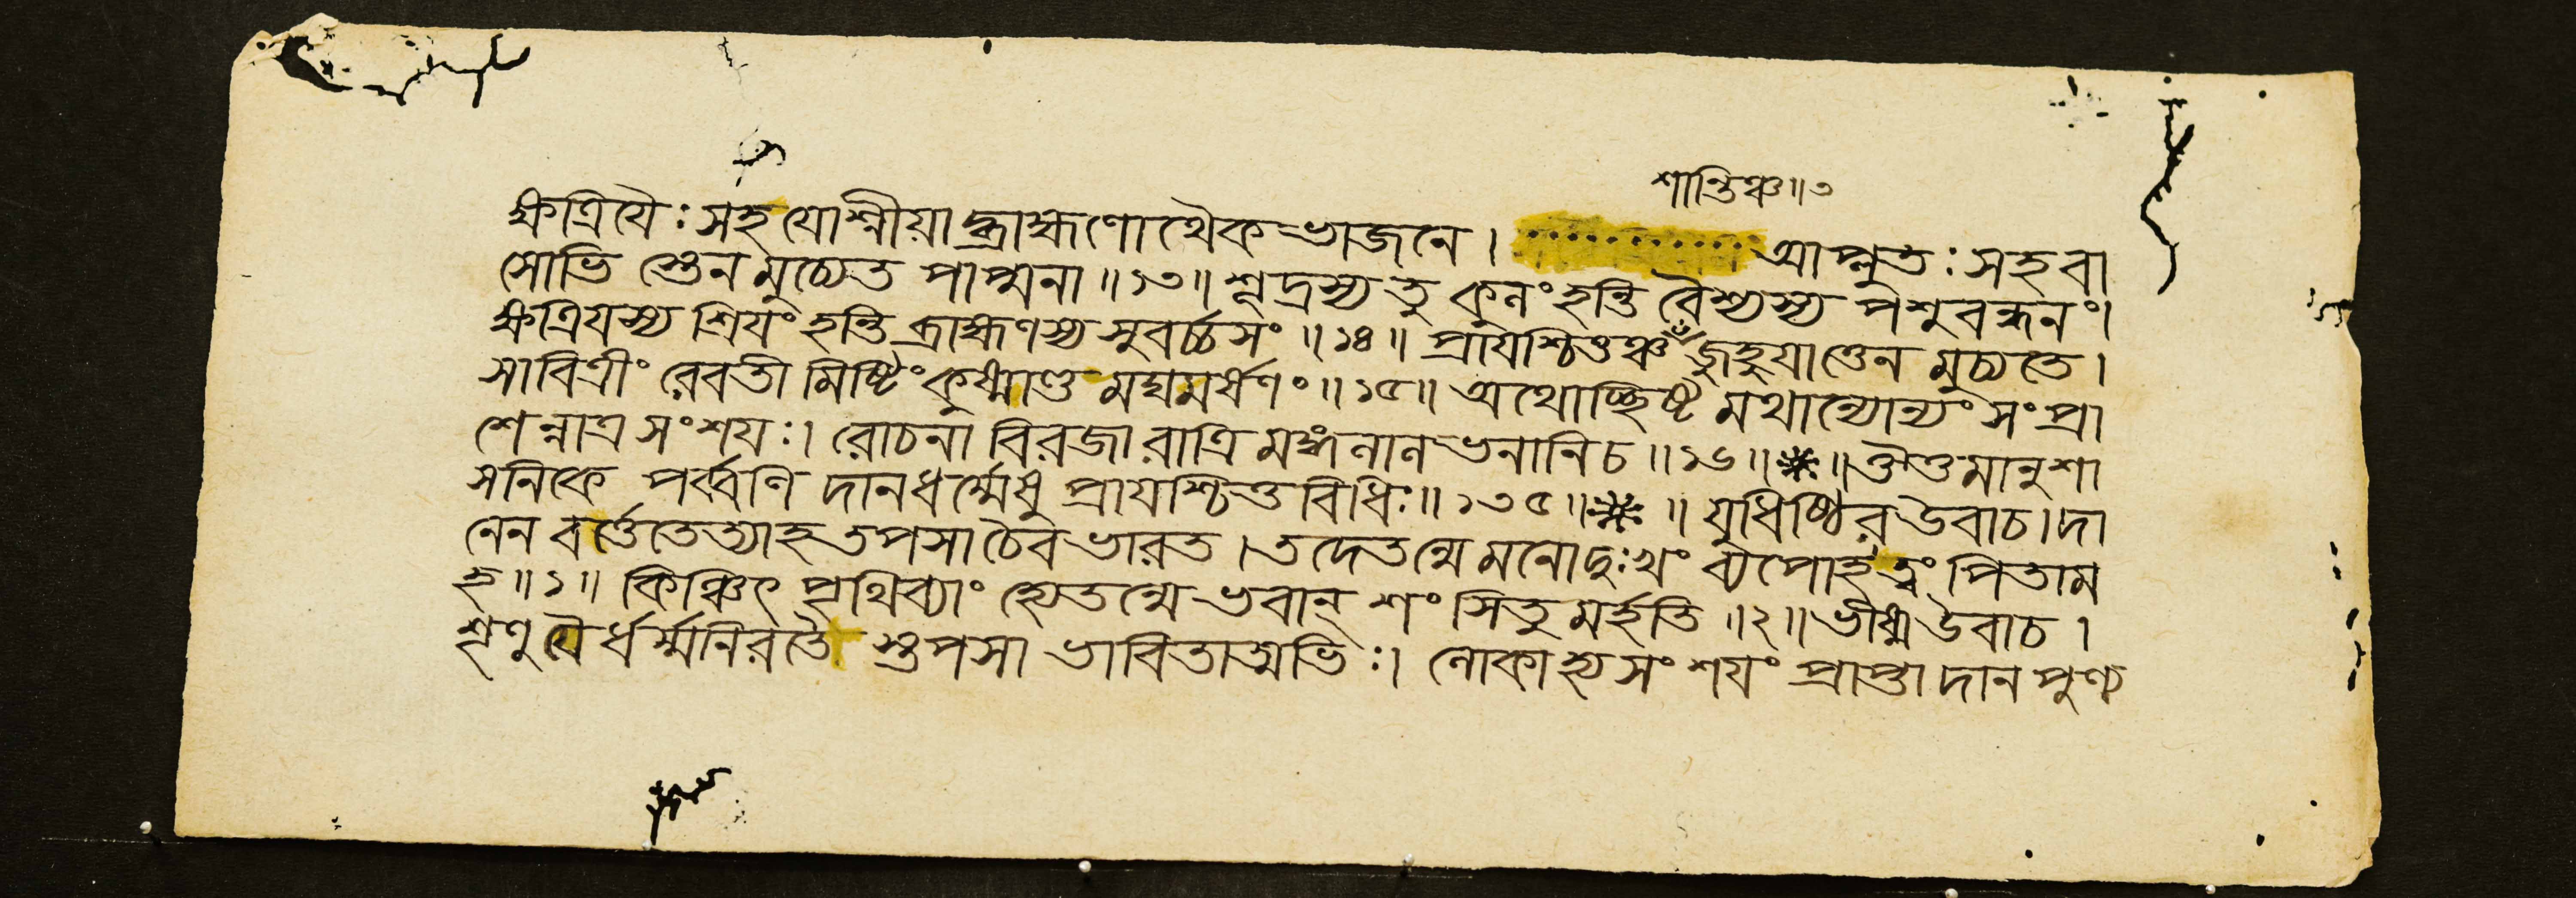 শান্তিঞ্চ॥৩
ক্ষত্রিয়ৈঃসহযোশ্নীয়াদ্ব্রাহ্মণোথৈকভাজনে। আপ্লুতঃসহবা
সোভিস্তেনমুচ্যেতপাপ্মনা॥১৩॥শূদ্রস্যতুকুলংহন্তিবৈশ্যস্যপশুবন্ধনং।
ক্ষত্রিয়স্যশ্রিয়ংহন্তিব্রাহ্মণস্যসুবর্চ্চসং॥১৪॥প্রায়শ্চিত্তঞ্চজুহুয়াত্তেনমুচ্যতে।
সাবিত্রীংরেবতীমিষ্টিংকুষ্মাণ্ডমঘমর্ষণং॥১৫॥অথোচ্ছিষ্টমথান্যোন্যংসংপ্রা
শেন্নাত্রসংশয়ঃ।রোচনাবিরজারাত্রিমঙ্গলানভনানিচ॥১৬॥
সনিকেপর্ব্বণিদানধর্ম্মেষুপ্রায়শ্চিত্তবিধিঃ॥১৩৫॥॥যুধিষ্ঠিরউবাচ।দা
নেনবর্ত্ততেত্যাহতপসাচৈবভারত।তদেতন্মেমনোদুঃখংব্যপোহত্বংপিতাম
হ॥১॥কিঞ্চিৎপৃথিব্যাংহ্যেতন্মেভবান্শংসিতুমর্হতি॥২॥ভীষ্মউবাচ।
শৃণুযৈর্ধর্ম্মনিরতৈস্তপসাভাবিতাত্মভিঃ।লোকাহ্যসংশয়ংপ্রাপ্তাদানপুণ্য